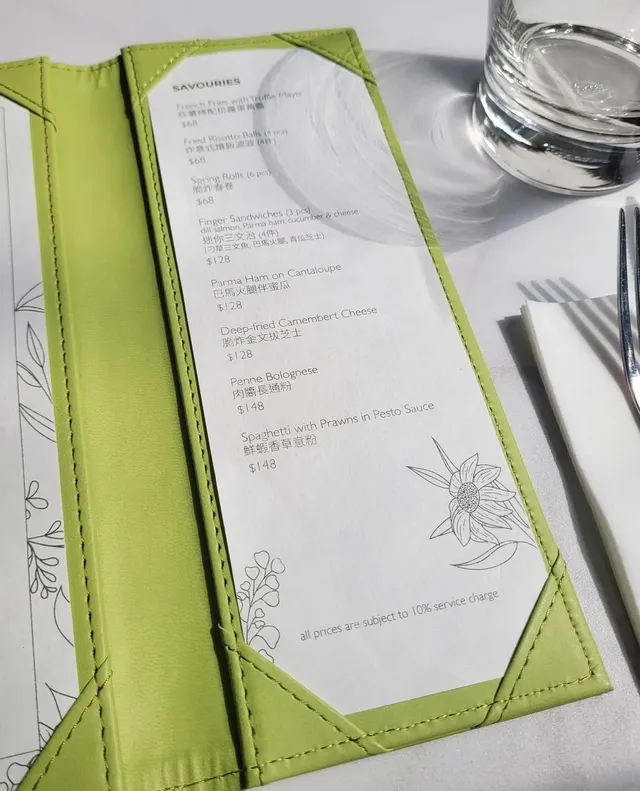 SAVOURIES
French Fries with Truffle Mayo
炸薯條配松露蛋黃醬
$68
Fried Risotto Balls (4 pcs)
炸意式燴飯波波 (4件)
$68
Spring Rolls (6 pcs)
脆炸春卷
$68
Finger Sandwiches (3 pcs)
dill salmon, Parma ham, cucumber & cheese
迷你三文治 (4件)
(刁草三文魚, 巴馬火腿, 青瓜芝士)
$128
Parma Ham on Cantaloupe
巴馬火腿伴蜜瓜
$128
Deep-fried Camembert Cheese
脆炸金文拔芝士
$128
Penne Bolognese
肉醬長通粉
$148
Spaghetti with Prawns in Pesto Sauce
鮮蝦香草意粉
$148
all prices are subject to 10% service charge